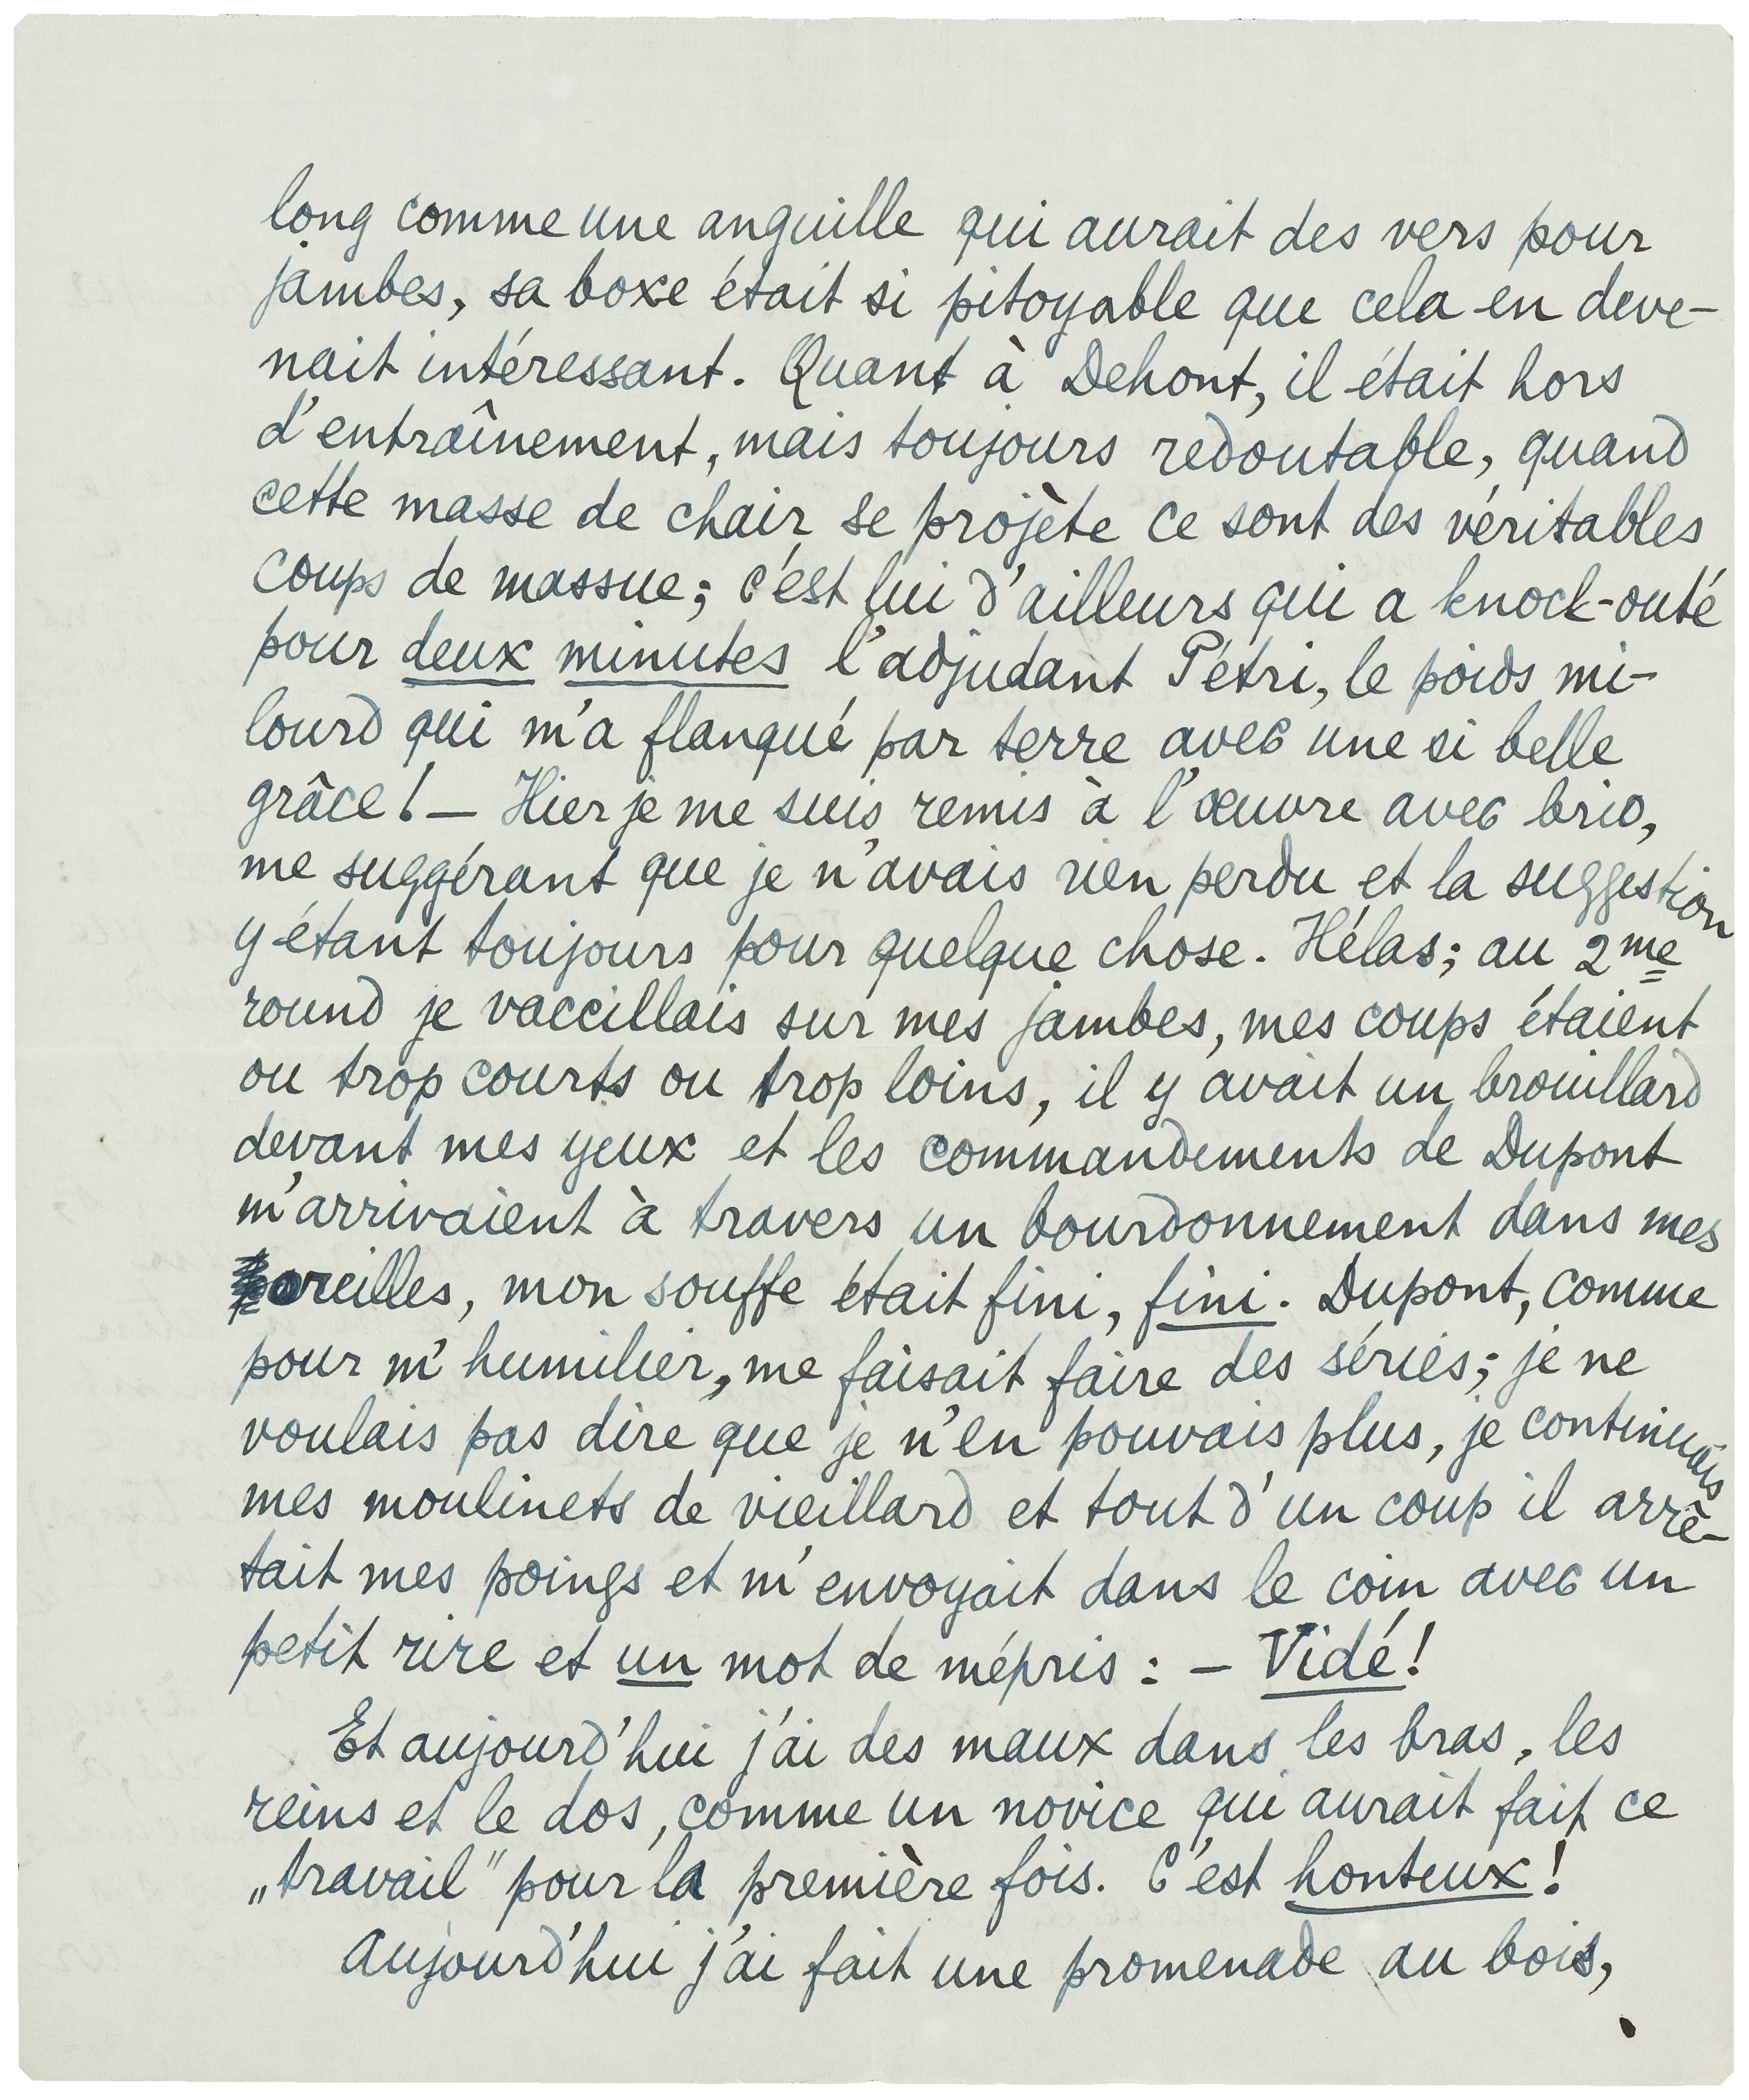 long comme une anguille qui aurait des vers pour
jambes, sa boxe était si pitoyable que cela en deve-
nait intéressant. Quant à Dehont, il était hors
d'entraînement, mais toujours redoutable, quand
cette masse de chair se projète ce sont des véritables
coups de massue; c'est lui d'ailleurs qui a knock-outé
pour deux minutes l'adjudant Pétri, le poids mi-
lourd qui m'a flanqué par terre avec une si belle
grâce! — Hier je me suis remis à l'œuvre avec brio,
me suggérant que je n'avais rien perdu et la suggestion
y étant toujours pour quelque chose. Hélas; au 2me
round je vaccillais sur mes jambes, mes coups étaient
ou trop courts ou trop loins, il y avait un brouillard
devant mes yeux et les commandements de Dupont
m'arrivaient à travers un bourdonnement dans mes
oreilles, mon souffe était fini, fini. Dupont, comme
pour m'humilier, me faisait faire des séries; je ne
voulais pas dire que je n'en pouvais plus, je continuais
mes moulinets de vieillard et tout d'un coup il arrê-
tait mes poings et m'envoyait dans le coin avec un
petit rire et un mot de mépris : — Vidé!
Et aujourd'hui j'ai des maux dans les bras, les
reins et le dos, comme un novice qui aurait fait ce
„travail" pour la première fois. C'est honteux!
Aujourd'hui j'ai fait une promenade au bois,